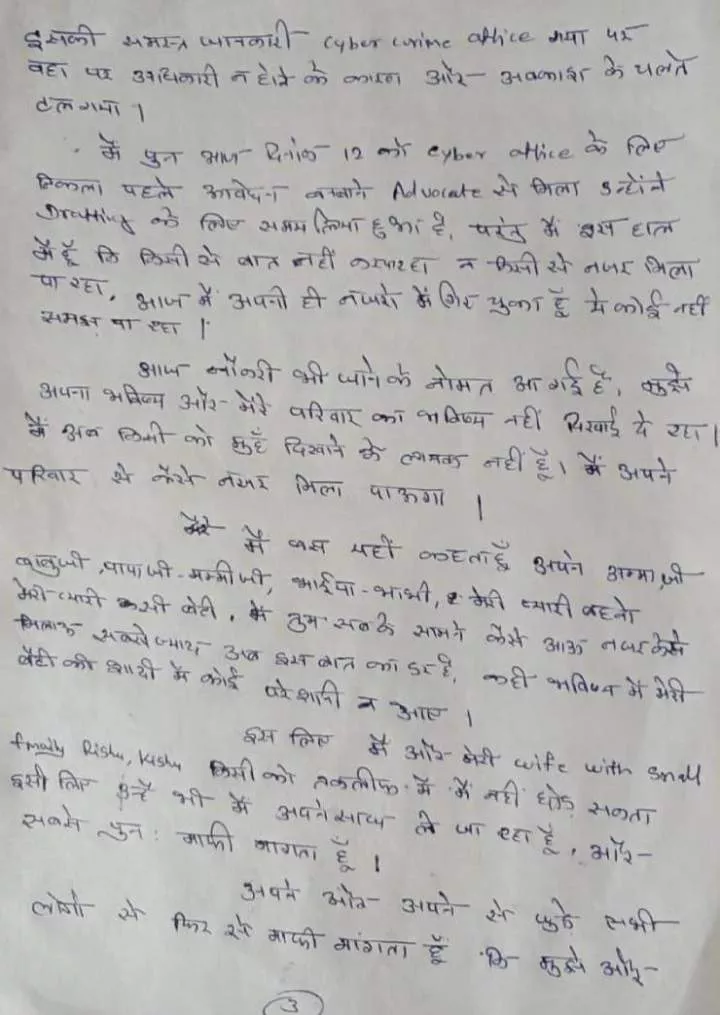 इसकी समस्त जानकारी cyber crime office गया पर
वहा पर अधिकारी न होने के कारण और अवकाश के चलते
टल गया ।
मैं पुन आज दिनांक 12 को cyber office के लिए
निकला पहले आवेदन बनवाने Advocate से मिला उन्होंने
Drafting के लिए समय लिया हुआ है, परंतु मैं इस हाल
में हूँ कि किसी से बात नहीं कर पा रहा न किसी से नजर मिला
पा रहा, आज मैं अपनी ही नजरो में गिर चुका हूँ ये कोई नहीं
समझ पा रहा ।
आज नौकरी भी जाने के नोमत आ गई है, मुझे
अपना भविष्य और मेरे परिवार का भविष्य नहीं दिखाई दे रहा ।
मैं अब किसी को मुहँ दिखाने के लायक नहीं हूँ। मैं अपने
परिवार से कैसे नजर मिला पाऊगा ।
मैं बस यही कहता हूँ अपने अम्मा जी
बाबुजी, पापाजी - मम्मीजी, भाईया - भाभी, मेरी प्यारी बहनो
मेरी प्यारी बेटी, मैं तुम सब के सामने कैसे आऊ नजर कैसे
मिलाऊ सबसे ज्यादा अब इस बात का डर है, कही भविष्य में मेरी
बेटी की शादी में कोई परेशानी न आए ।
इस लिए मैं और मेरी wife with small
fmaily Rishu, Kishu किसी को तकलीफ में मैं नही छोड़ सकता
इसी लिए उन्हें भी मैं अपने साथ ले जा रहा हूँ, और
सबसे पुन: माफी मागता हूँ ।
अपने और अपने से जुड़े सभी
लोगो से फिर से माफी मांगता हूँ कि मुझे और
3